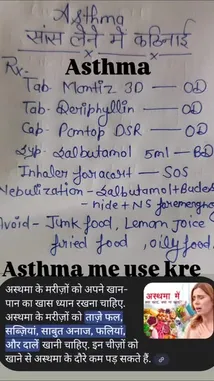 Asthma
सांस लेने में कठिनाई
Rx-
Asthma
Tab Montiz 3D — OD
Tab- Deriphyllin — OD
Cap- Pantop DSR — OD
Syp- Salbutamol 5ml — BD
Inhaler foracart — SOS
Nebulization - Salbutamol+Budes
-nide + NS for emergen
Avoid - Junk food, Lemon joice
fried food, oily food
Asthma me use kre
अस्थमा के मरीज़ों को अपने खान-
पान का खास ध्यान रखना चाहिए.
अस्थमा के मरीज़ों को ताज़े फल,
सब्ज़ियां, साबुत अनाज, फलियां,
और दालें खानी चाहिए. इन चीज़ों को
खाने से अस्थमा के दौरे कम पड़ सकते हैं.
अस्थमा में